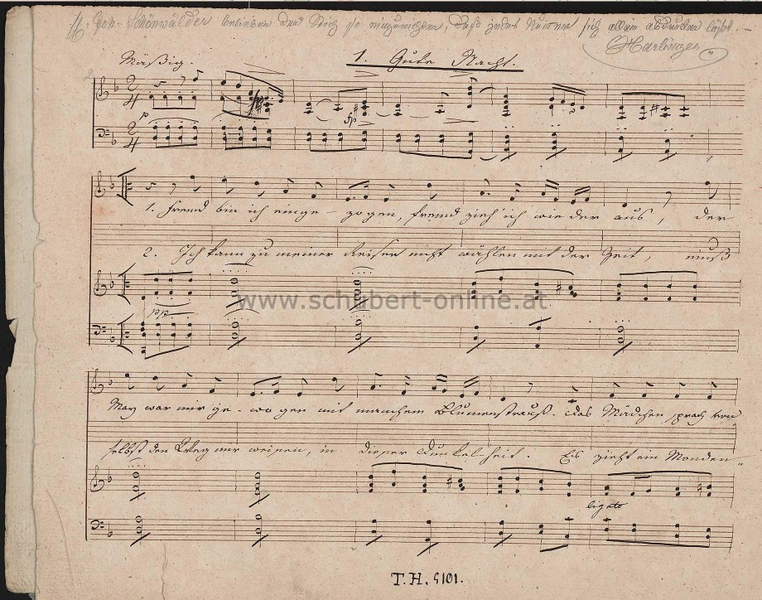 H. Joh. Schönwälder belieben den Stich so einzurichten, daß jedes Numer sich allein abdrucken läßt. –
Haslinger
Mäßig.
1. Gute Nacht.
p
fp
1. Fremd bin ich einge - zogen, fremd zieh' ich wieder aus, der
2. Ich kann zu meiner Reisen nicht wählen mit der Zeit, muß
pp
www.schubert-online.at
May war mir ge - wogen mit manchem Blumenstrauß. Das Mädchen sprach von
selbst den Weg mir weisen, in dieser Dunkelheit. Es zieht ein Monden„
ligato
T.H. 5101.